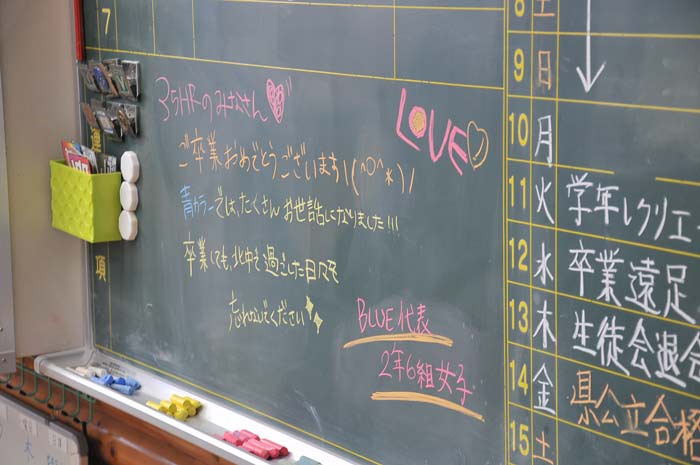 7
35HRのみなさん
LOVE
ご卒業おめでとうございます\(^O^*)/
青カラーでは、たくさんお世話になりました!!!
卒業しても、北中で過ごした日々を
忘れないでください
BLUE代表
2年6組女子
項
8 土
9 日
10 月
11 火 学年レクリエ
12 水 卒業遠足
13 木 生徒会退会
14 金 県公立合格
15 土